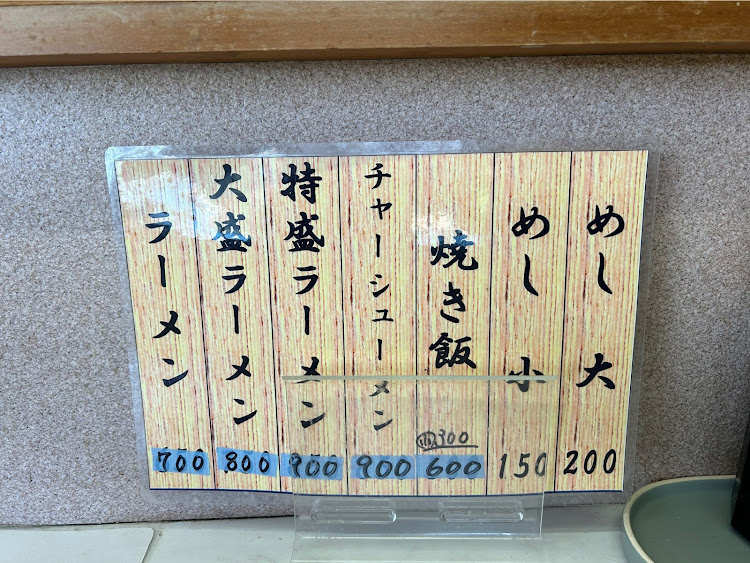 めし 大
200
めし 小
150
焼き飯
小 300
600
チャーシューメン
900
特盛ラーメン
900
大盛ラーメン
800
ラーメン
700